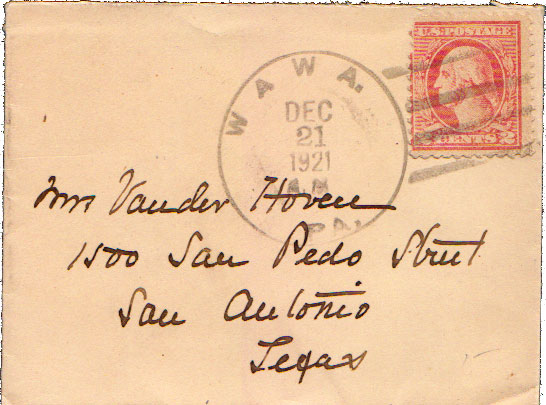 U.S. POSTAGE
2 CENTS 2
WAWA.
DEC
21
1921
A.M.
PA.
Mrs Vander Hoven
1500 San Pedo Street
San Antonio
Texas